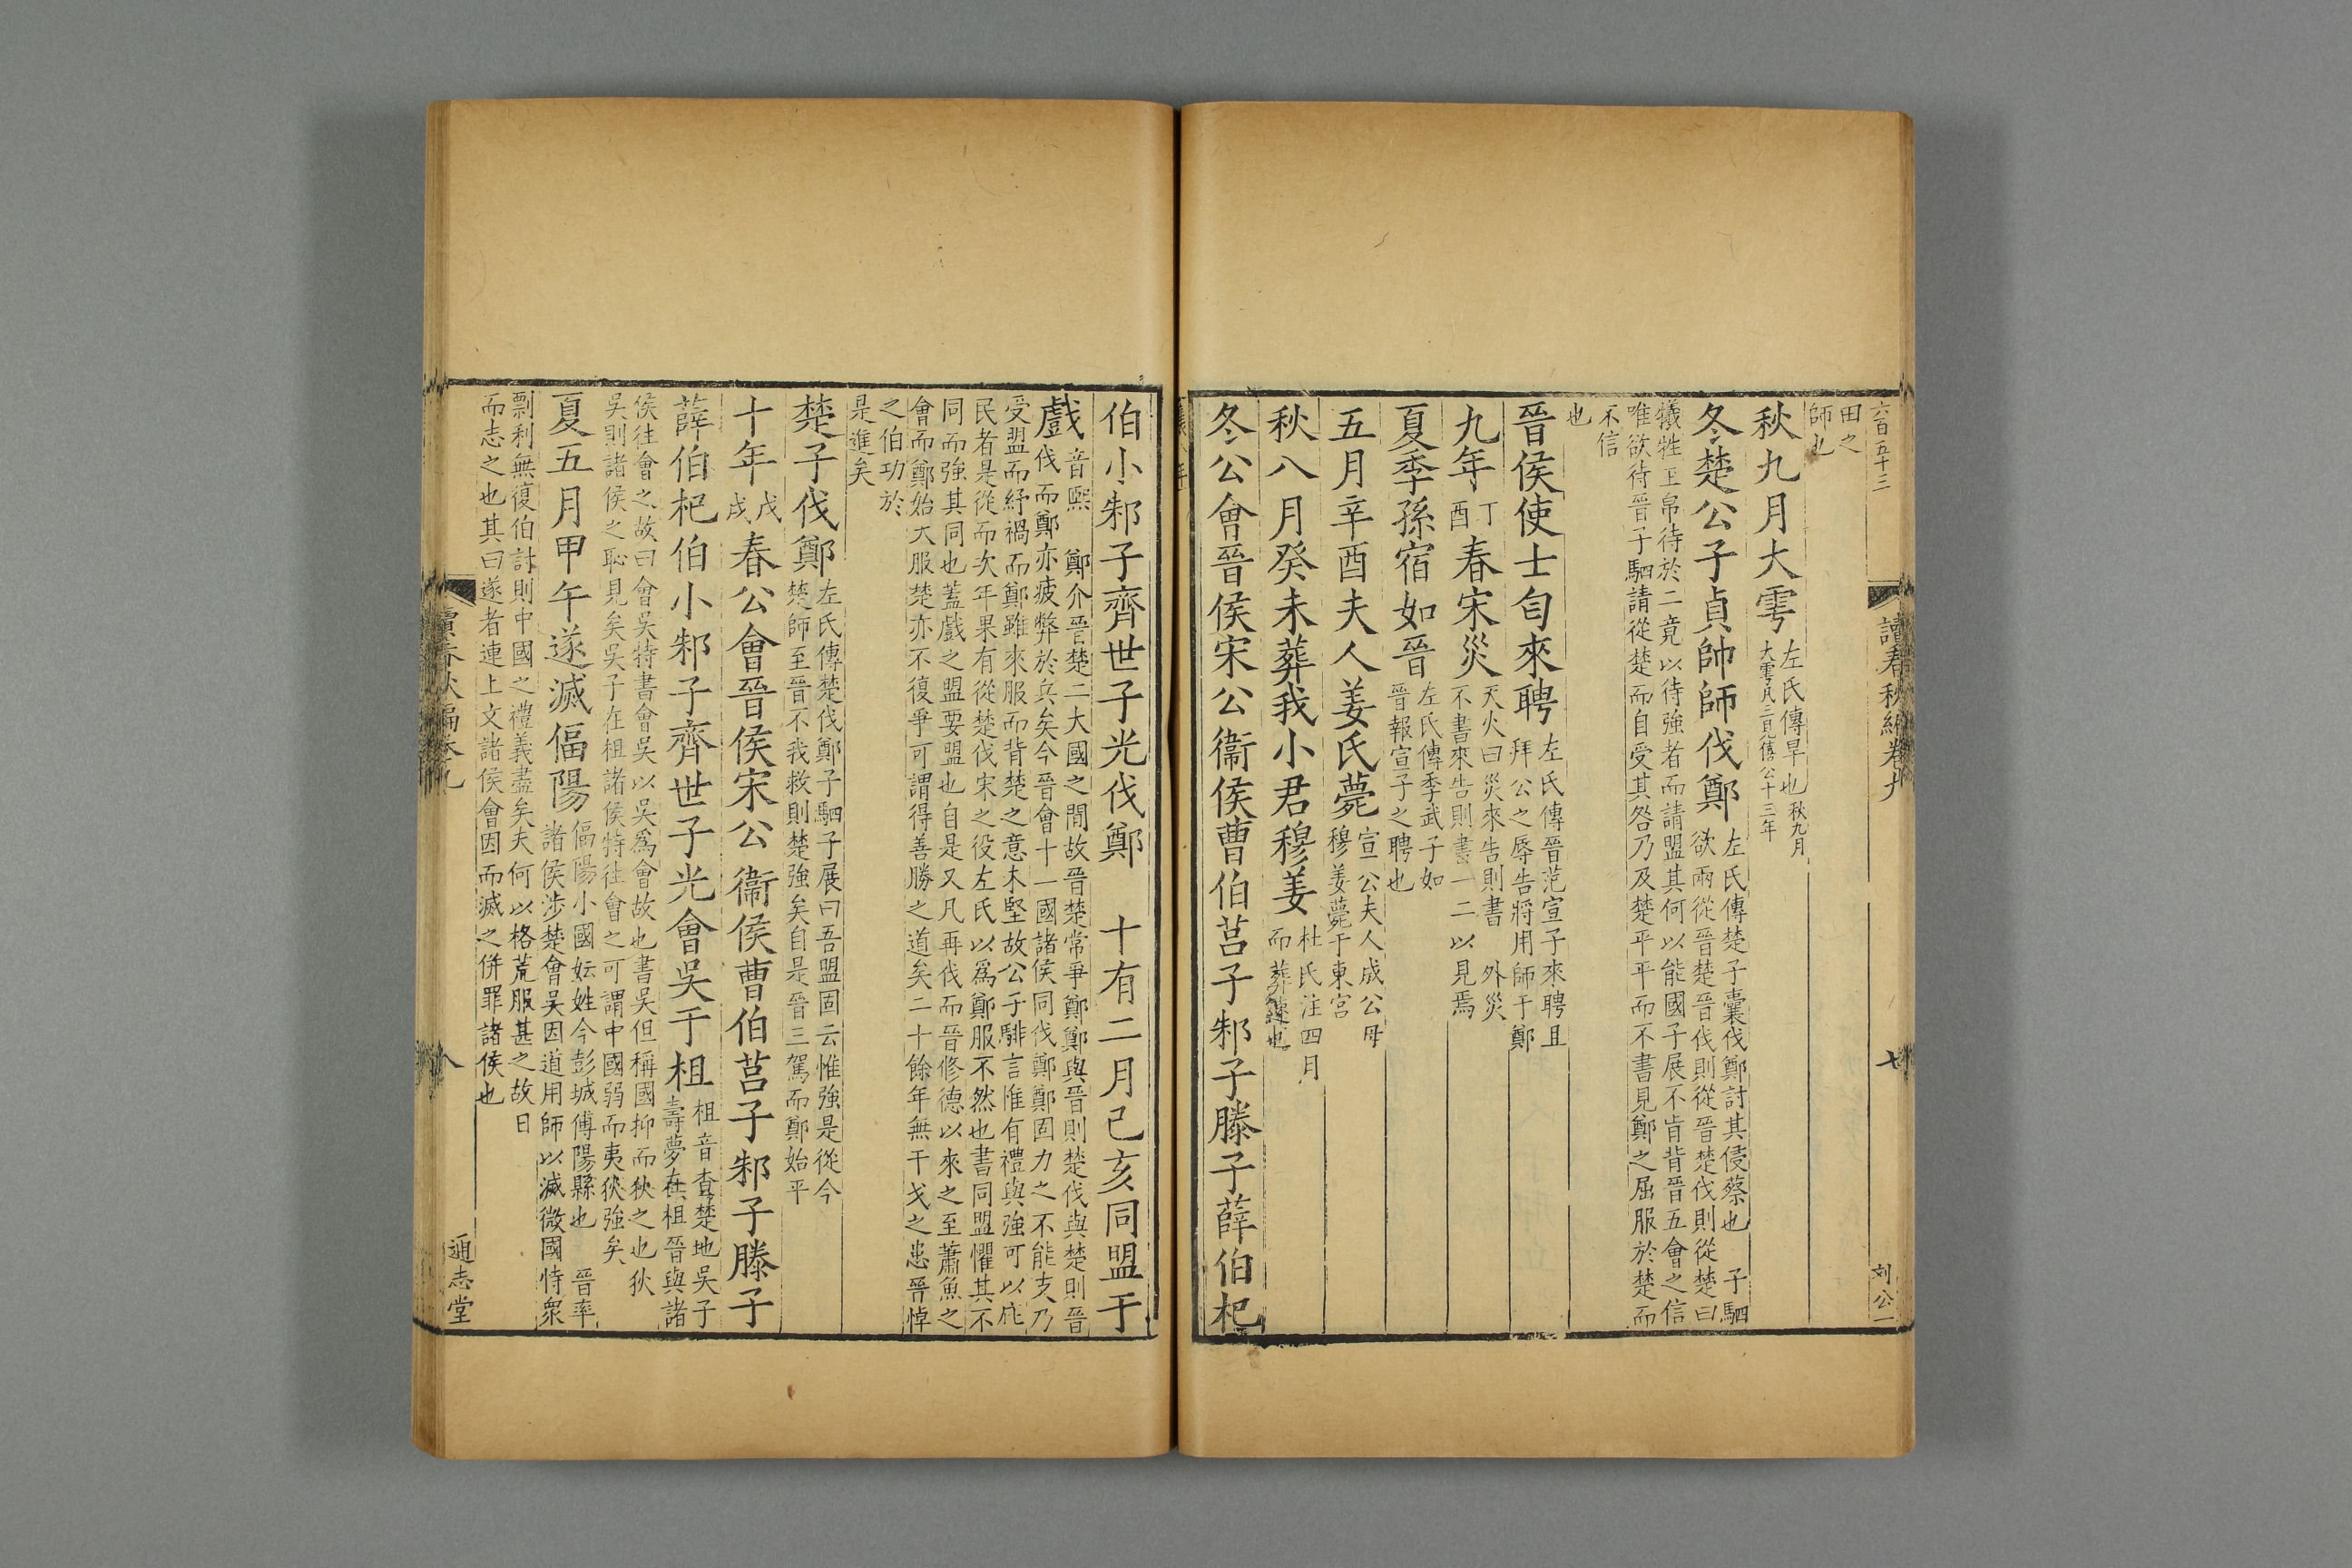 六百五十三
讀春秋編卷九
七
刘公一
田之
師也
秋九月大雩左氏傳旱也秋九月
大雩凡三見僖公十三年
冬楚公子貞帥師伐鄭左氏傳楚子囊伐鄭討其侵蔡也 子駟
欲兩從晉楚晉伐則從晉楚伐則從楚曰
犧牲玉帛待於二竟以待強者而請盟其何以能國子展不肯背晉五會之信
唯欲待晉子駟請從楚而自受其咎乃及楚平平而不書見鄭之屈服於楚而
不信
也
晉侯使士匄來聘左氏傳晉范宣子來聘且
拜公之辱告將用師于鄭
九年丁酉春宋災天火曰災來告則書 外災
不書來告則書一二以見焉
夏季孫宿如晉左氏傳季武子如
晉報宣子之聘也
五月辛酉夫人姜氏薨宣公夫人成公母
穆姜薨于東宮
秋八月癸未葬我小君穆姜杜氏注四月
而葬速也
冬公會晉侯宋公衞侯曹伯莒子邾子滕子薛伯杞
伯小邾子齊世子光伐鄭 十有二月己亥同盟于
戲音熙 鄭介晉楚二大國之間故晉楚常爭鄭鄭與晉則楚伐與楚則晉
伐而鄭亦疲弊於兵矣今晉會十一國諸侯同伐鄭鄭固力之不能支乃
受盟而紓禍而鄭雖來服而背楚之意未堅故公子騑言惟有禮與強可以庇
民者是從而次年果有從楚伐宋之役左氏以爲鄭服不然也書同盟懼其不
同而強其同也蓋戲之盟要盟也自是又凡再伐而晉修德以來之至蕭魚之
會而鄭始大服楚亦不復爭可謂得善勝之道矣二十餘年無干戈之患晉悼
之伯功於
是進矣
楚子伐鄭左氏傳楚伐鄭子駟子展曰吾盟固云惟強是從今
楚師至晉不我救則楚強矣自是晉三駕而鄭始平
十年戊戌春公會晉侯宋公衞侯曹伯莒子邾子滕子
薛伯杞伯小邾子齊世子光會吳于柤柤音查楚地吳子
壽夢在柤晉與諸
侯往會之故曰會吳特書會吳以吳爲會故也書吳但稱國抑而狄之也狄
吳則諸侯之恥見矣吳子在柤諸侯特往會之可謂中國弱而夷狄強矣
夏五月甲午遂滅偪陽偪陽小國妘姓今彭城傅陽縣也 晉率
諸侯涉楚會吳因道用師以滅微國恃衆
剽利無復伯討則中國之禮義盡矣夫何以格荒服甚之故日
而志之也其曰遂者連上文諸侯會因而滅之併罪諸侯也
讀春秋編卷九
八
通志堂